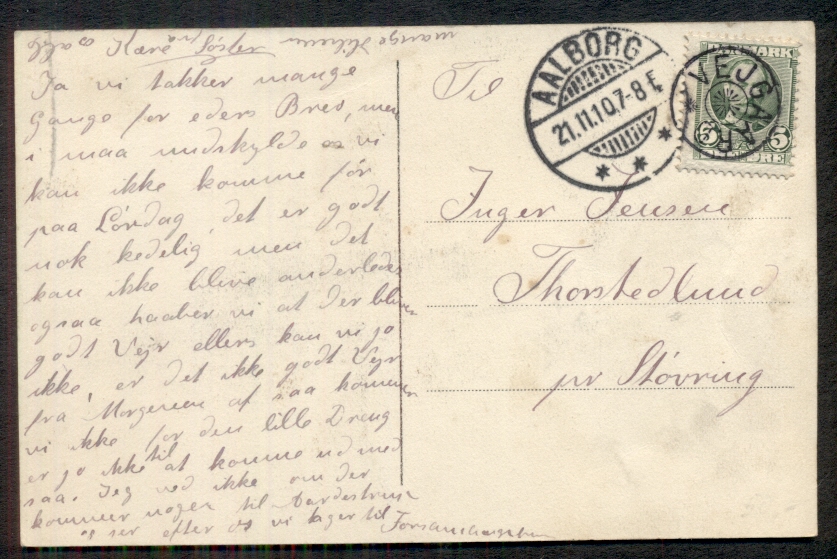 mange Hilsen fra
Kære Søster
Ja vi takker mange
Gange for eders Brev, men
i maa undskylde os vi
kan ikke komme før
paa Lørdag, det er godt
nok kedelig men det
kan ikke blive anderledes
ogsaa haaber vi at der bliver
godt Vejr ellers kan vi jo
ikke, er det ikke godt Vejr
fra Morgenen af saa kommer
vi ikke for den lille Dreng
er jo ikke til at komme ud med
saa. Jeg ved ikke om der
kommer nogen til
og ser efter os vi tager til
AALBORG
21.11.10.7-8 E
VEJGA
DANMARK
5 5
ØRE
Til
Inger Jensen
Thorstedlund
pr Støvring